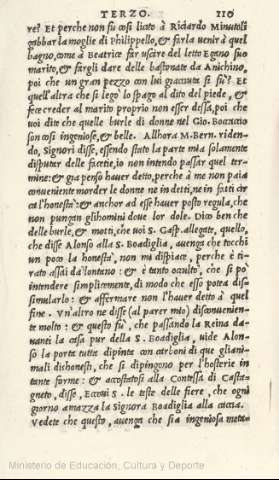 TERZO. 110
re? Et perche non fu cosi licito à Ricciardo Minutoli
gabbar la moglie di Philippello, & farla venir à quel
bagno, come à Beatrice far uscire del letto Egano suo
marito, & fargli dare delle bastonate da Anichino,
poi che un gran pezzo con lui giacciuta si fu? Et
quell'altra che si legò lo spago al dito del piede, &
fece creder al marito proprio non esser dessa, poi che
voi dite che quelle burle di donne nel Gio. Boccaccio
son cosi ingeniose, & belle. Allhora M. Bern. riden-
do, Signori disse, essendo stato la parte mia solamente
disputar delle facetie, io non intendo passar quel ter-
mine: & gia penso hauer detto, perche à me non paia
conueniente morder le donne ne in detti, ne in fatti cir
ca l'honestà: & anchor ad esse hauer posto regula, che
non pungan gli homini doue lor dole. Dico ben che
delle burle, & motti, che uoi S. Gasp. allegate, quello,
che disse Alonso alla S. Boadiglia, auenga che tocchi
un poco la honestà, non mi dispiace, perche è ti-
rato assai da lontano: & è tanto occulto, che si po
intendere simplicemente, di modo che esso potea dis-
simularlo: & affermare non l'hauer detto à quel
fine. Vn'altro ne disse (al parer mio) disconuenien-
te molto: & questo fu, che passando la Reina da-
uanti la casa pur della S. Boadiglia, uide Alon-
so la porta tutta dipinta con carboni di que gli ani-
mali dichonesti, che si dipingono per l'hosterie in
tante forme: & accostatosi alla Contessa di Casta-
gneto, disse, Eccoui S. le teste delle fiere, che ogni
giorno amazza la Signora Boadiglia alla caccia.
Vedete che questo, auenga che sia ingeniosa meta-
Ministerio de Educación, Cultura y Deporte